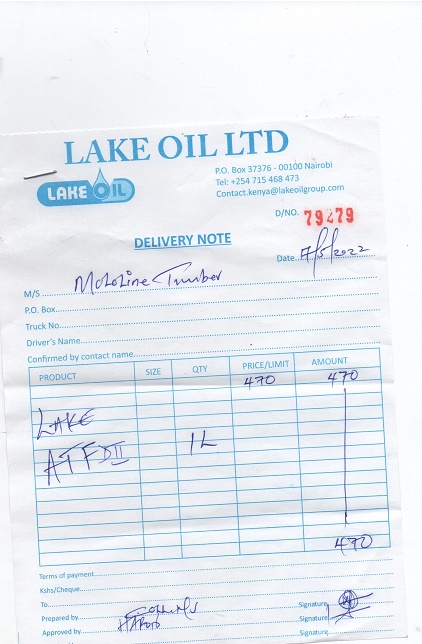 LAKE OIL LTD
P.O. Box 37376 - 00100 Nairobi
Tel: +254 715 468 473
Contact.kenya@lakeoilgroup.com
LAKE OIL
D/NO. 79279
DELIVERY NOTE
Date 7/5/2022
M/S Motoline Timber
P.O. Box
Truck No
Driver's Name
Confirmed by contact name
PRODUCT SIZE QTY PRICE/LIMIT AMOUNT
470 470
LAKE
ATFDII 1L
470
Terms of payment
Kshs/Cheque
To
Prepared by Signature
Approved by Signature